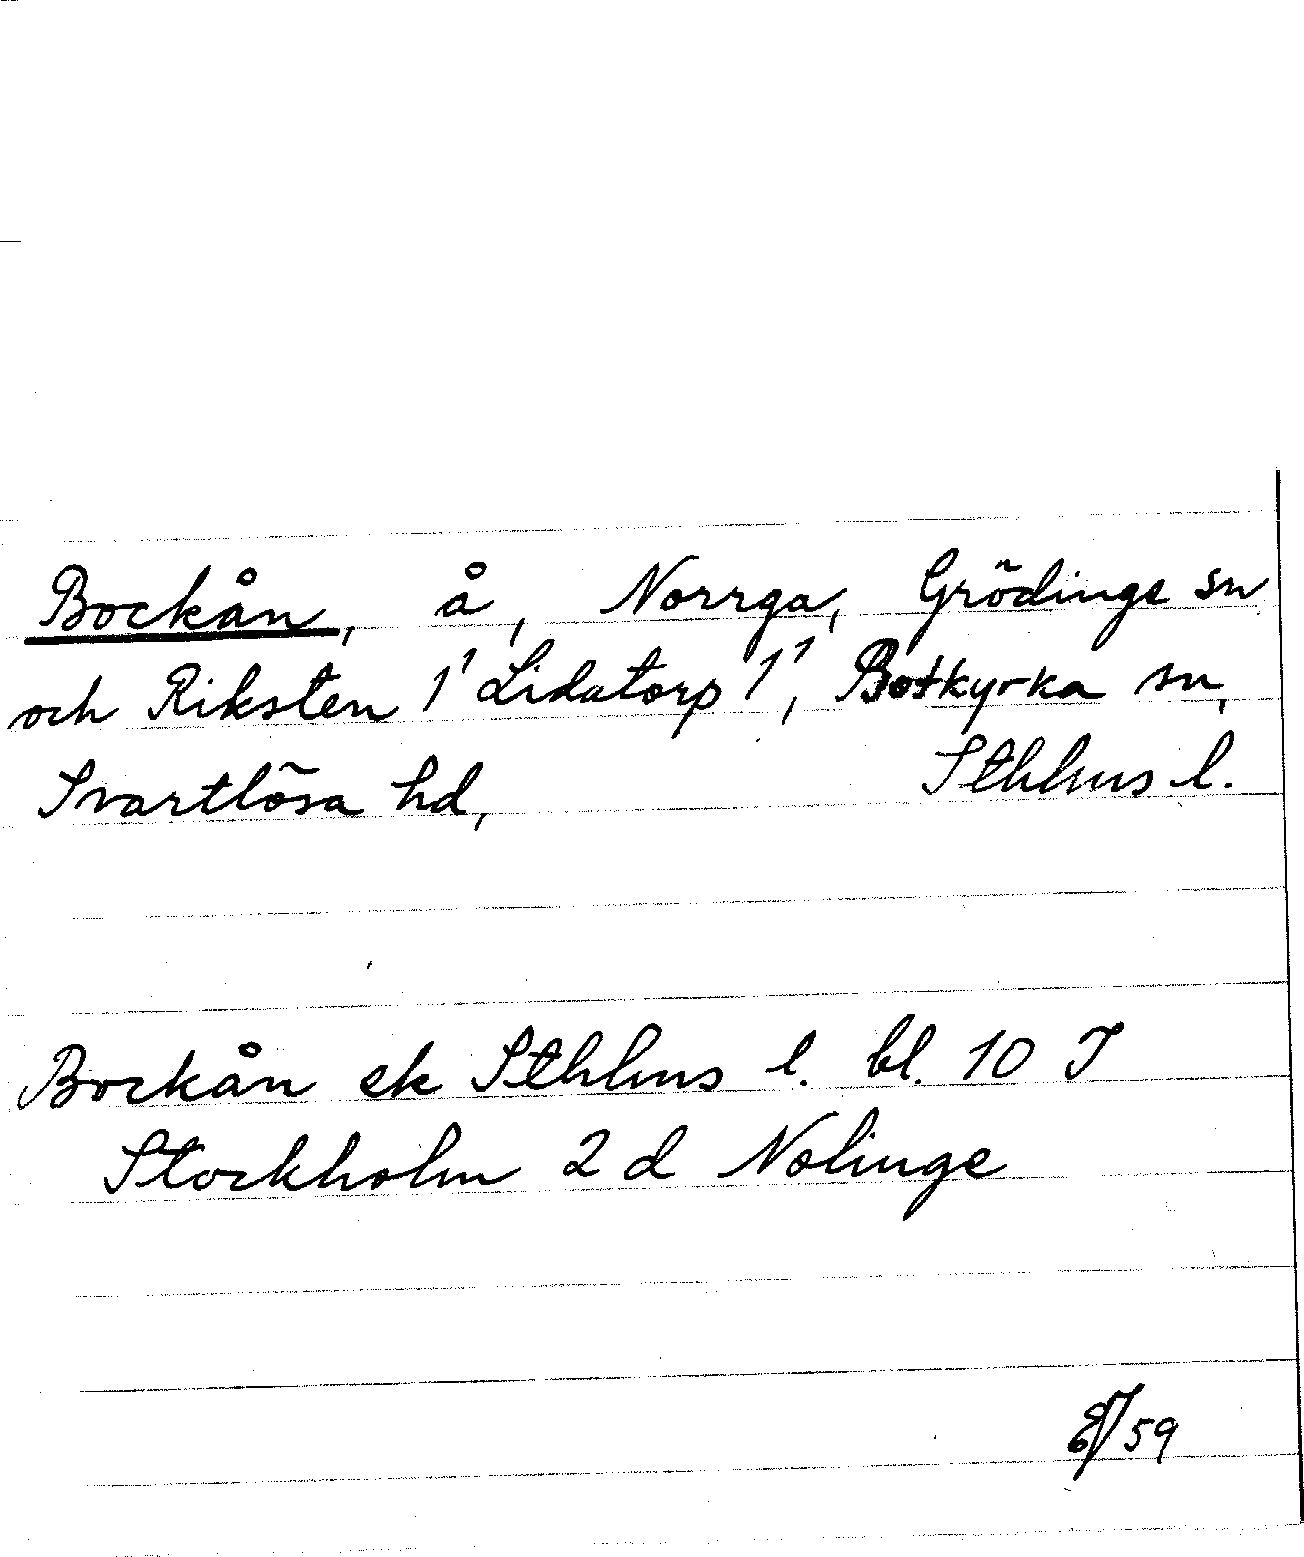 Bockån, å, Norrga, Grödinge sn
och Riksten 1¹ Lidatorp 1¹, Botkyrka sn,
Svartlösa hd, Sthlms l.
Bockån ek Sthlms l. bl. 10 J
Stockholm 2 d Nolinge
59